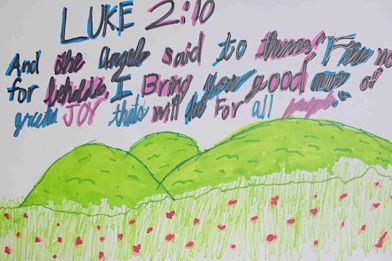 LUKE 2:10
And the Angels said to them: "Fear no
for behold, I Bring you good news of
great JOY thats will be For all people."